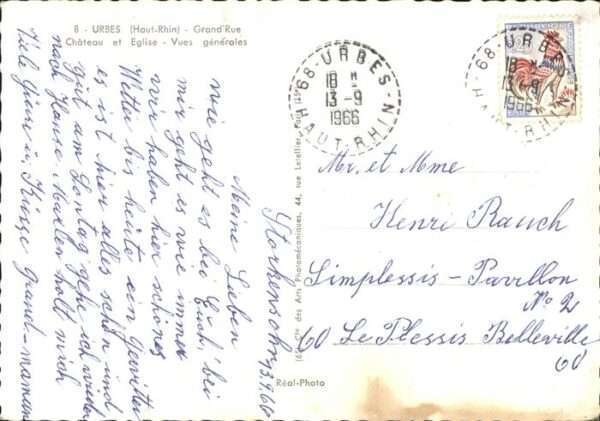 8 - URBES (Haut-Rhin) - Grand'Rue
Château et Eglise - Vues générales
68 - URBES -
18 H
13 - 9
1966
HAUT-RHIN
68 - URBES
18 H
13 - 9
1966
HAUT-RHIN
Storkensohn 13.9.66
Meine Lieben
wie geht es bei Euch, bei
mir geht es wie immer
wir haben hier schönes
Wetter bis heute ein
es ist hier alles schön und
gut am Sontag gehe ich wieder
nach Hause holt mich
Viele Grüsse in Grand-maman
Mr. et Mme
Henri Rauch
Simplessis - Pavillon
No 2
60 Le Plessis Belleville
60
des Arts Photomécaniques, 44, rue Letellier
Réal-Photo